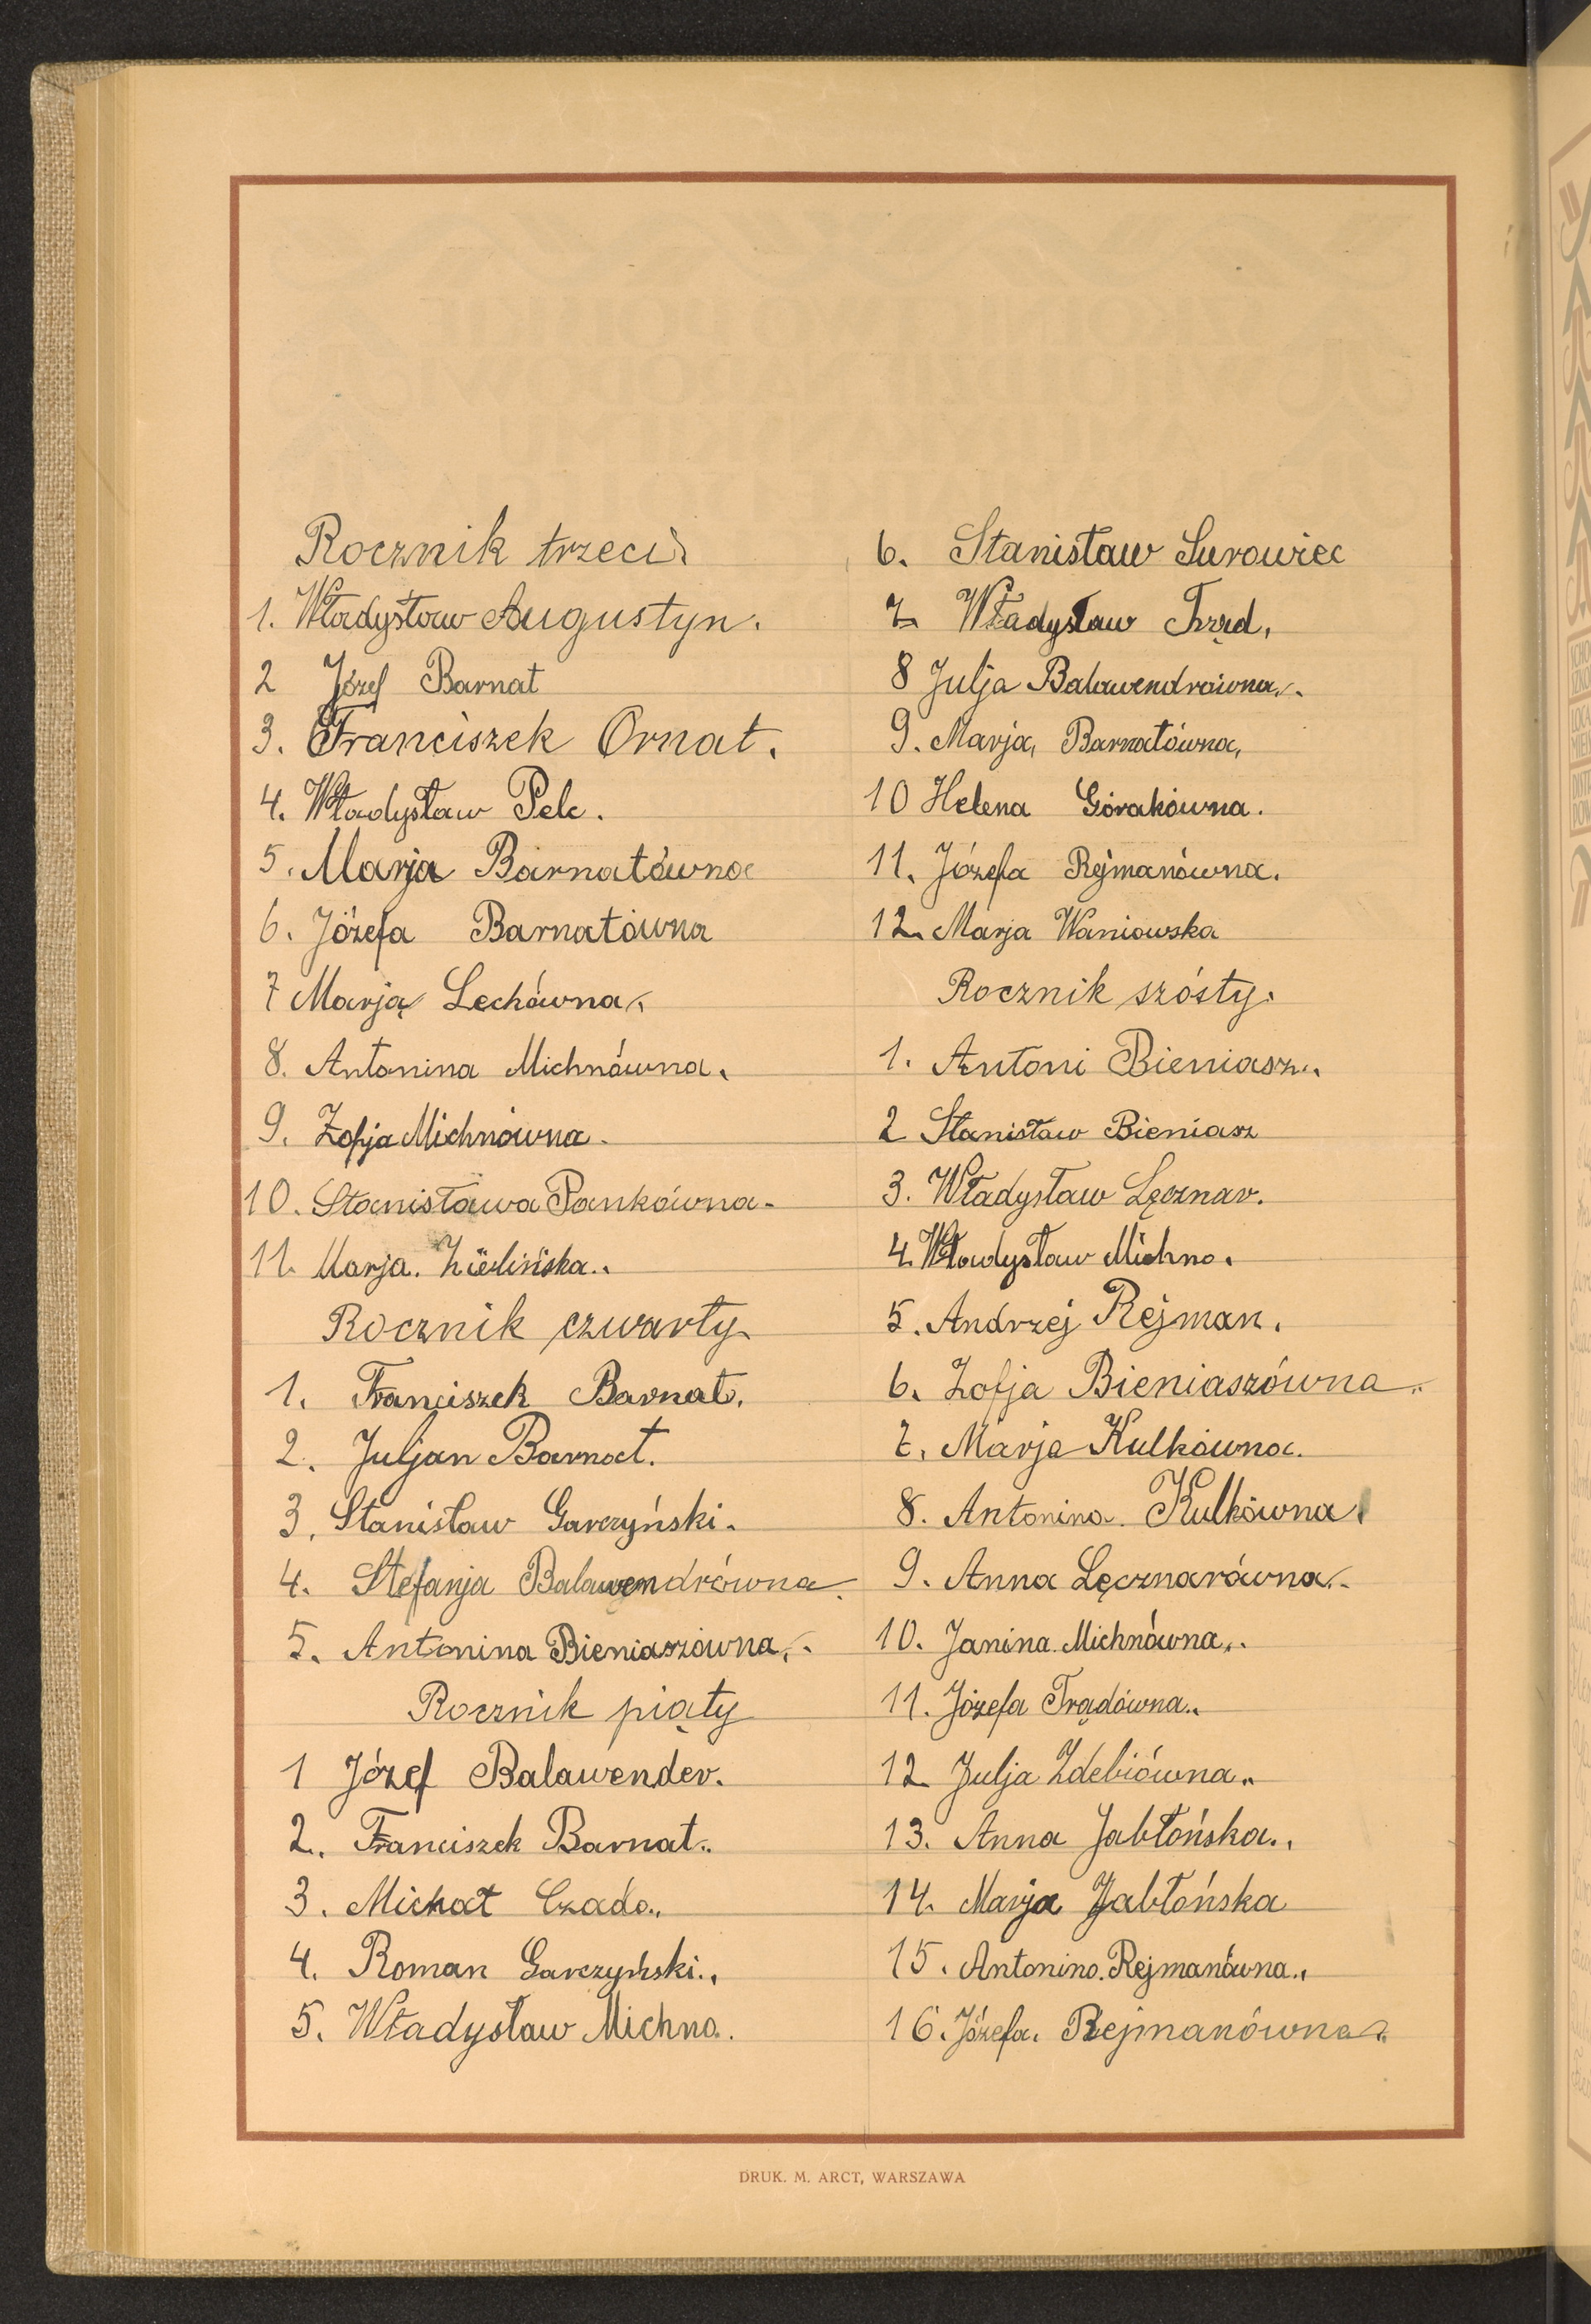 Rocznik trzeci.
1. Władysław Augustyn.
2 Józef Barnat
3. Franciszek Ornat.
4. Władysław Pelc.
5. Marja Barnatówna
6. Józefa Barnatówna
7 Marja Lechówna.
8. Antonina Michnówna.
9. Zofja Michnówna.
10. Stanisława Pankówna.
11. Marja. Zielińska.
Rocznik czwarty.
1. Franciszek Barnat.
2. Juljan Barnat.
3. Stanisław Garczyński.
4. Stefanja Balawendrówna.
5. Antonina Bieniaszówna.
Rocznik piąty
1 Józef Balawender.
2. Franciszek Barnat.
3. Michał Czado.
4. Roman Garczyński.
5. Władysław Michno.
6. Stanisław Surowiec
7. Władysław Trząd.
8 Julja Balawendrówna.
9. Marja, Barnatówna,
10 Helena Górakówna.
11. Józefa Rejmanówna.
12. Marja Waniowska
Rocznik szósty.
1. Antoni Bieniasz.
2 Stanisław Bieniasz
3. Władysław Lęcznar.
4. Władysław Michno.
5. Andrzej Rejman.
6. Zofja Bieniaszówna.
7. Marja Kulkówna.
8. Antonina. Kulkówna.
9. Anna Lęcznarówna.
10. Janina Michnówna.
11. Józefa Trądówna.
12 Julja Zdebiówna.
13. Anna Jabłońska.
14. Marja Jabłońska
15. Antonina. Rejmanówna.
16. Józefa. Rejmanówna.
DRUK. M. ARCT, WARSZAWA